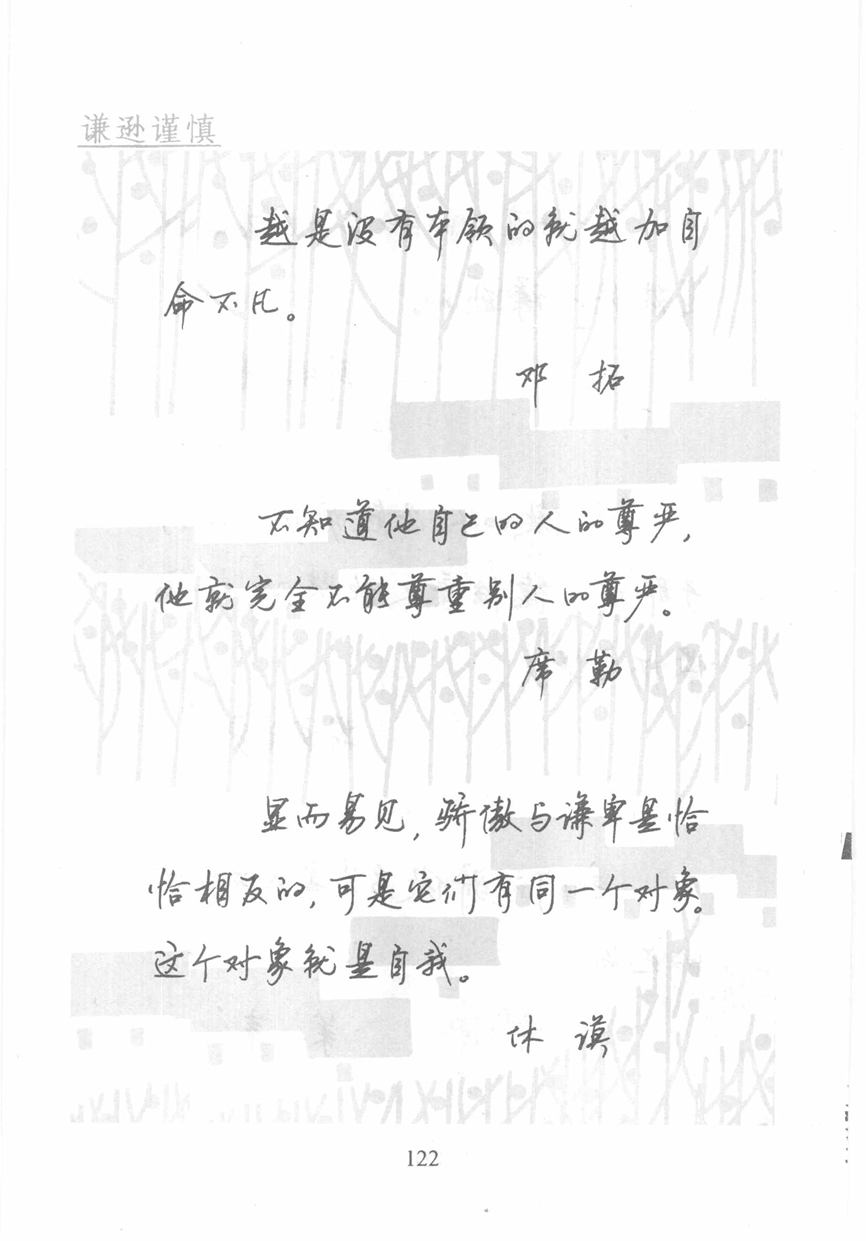 谦逊谨慎
越是没有本领的就越加自
命不凡。
邓 拓
不知道他自己的人的尊严,
他就完全不能尊重别人的尊严。
席 勒
显而易见, 骄傲与谦卑是恰
恰相反的, 可是它们有同一个对象。
这个对象就是自我。
休 谟
122